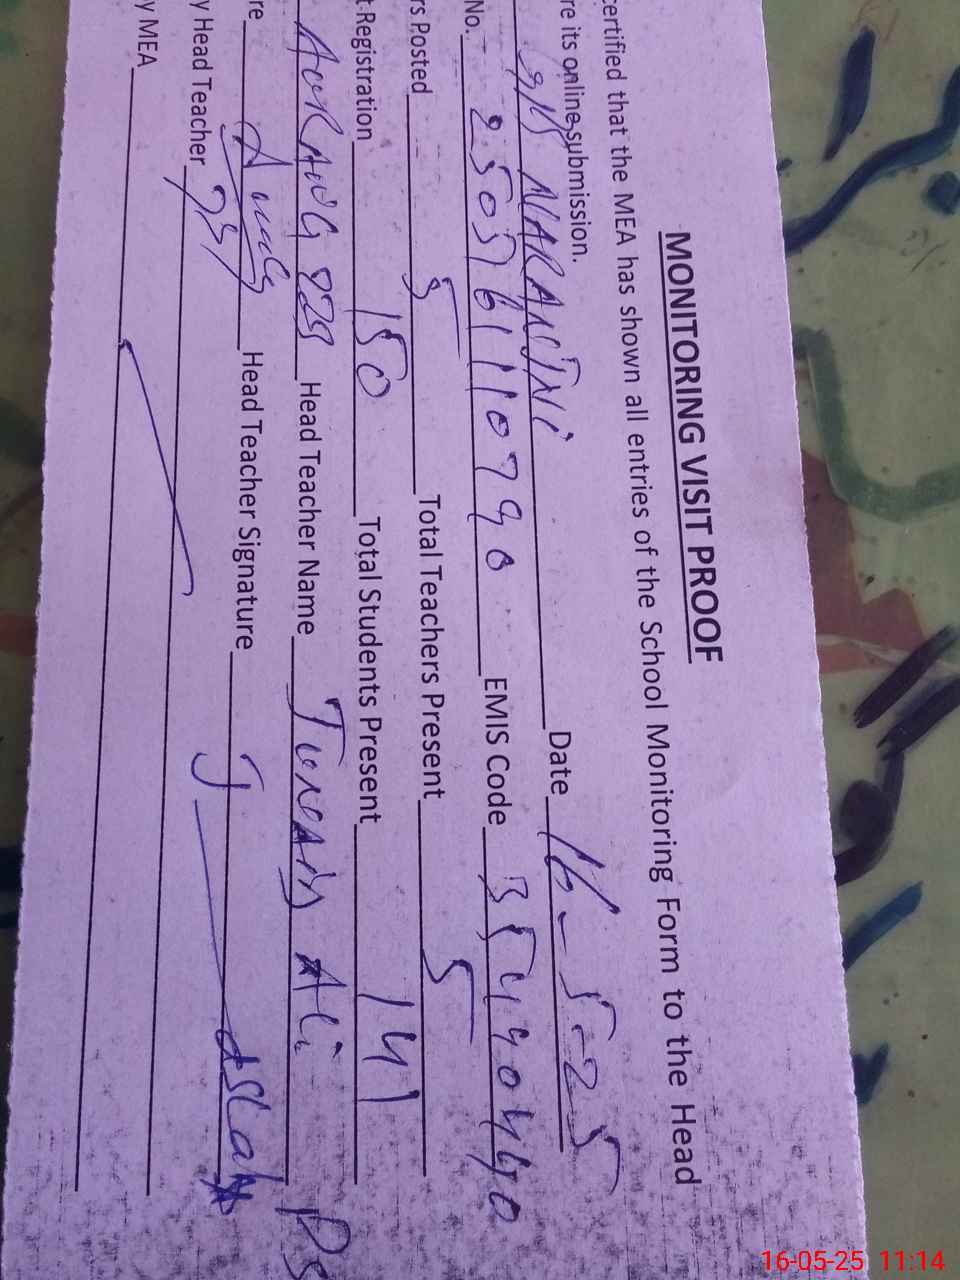 MONITORING VISIT PROOF
certified that the MEA has shown all entries of the School Monitoring Form to the Head
re its online submission.
NARANJNI Date 16-5-25
No. 2505761110790 EMIS Code 35440440
rs Posted 5 Total Teachers Present 5
t Registration 150 Total Students Present 141
Head Teacher Name Ali
re Head Teacher Signature
y Head Teacher
y MEA
16-05-25 11:14